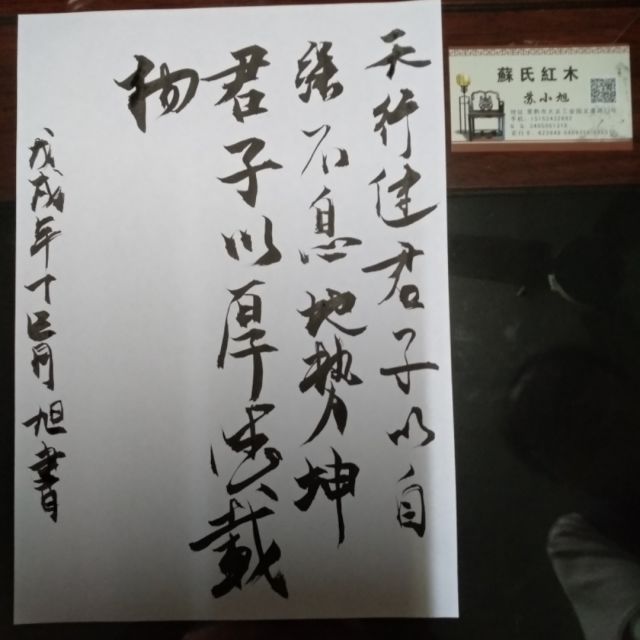 天行健君子以自
强不息地勢坤
君子以厚德載
物
戊戌年丁巳月旭書
蘇氏紅木
苏小旭